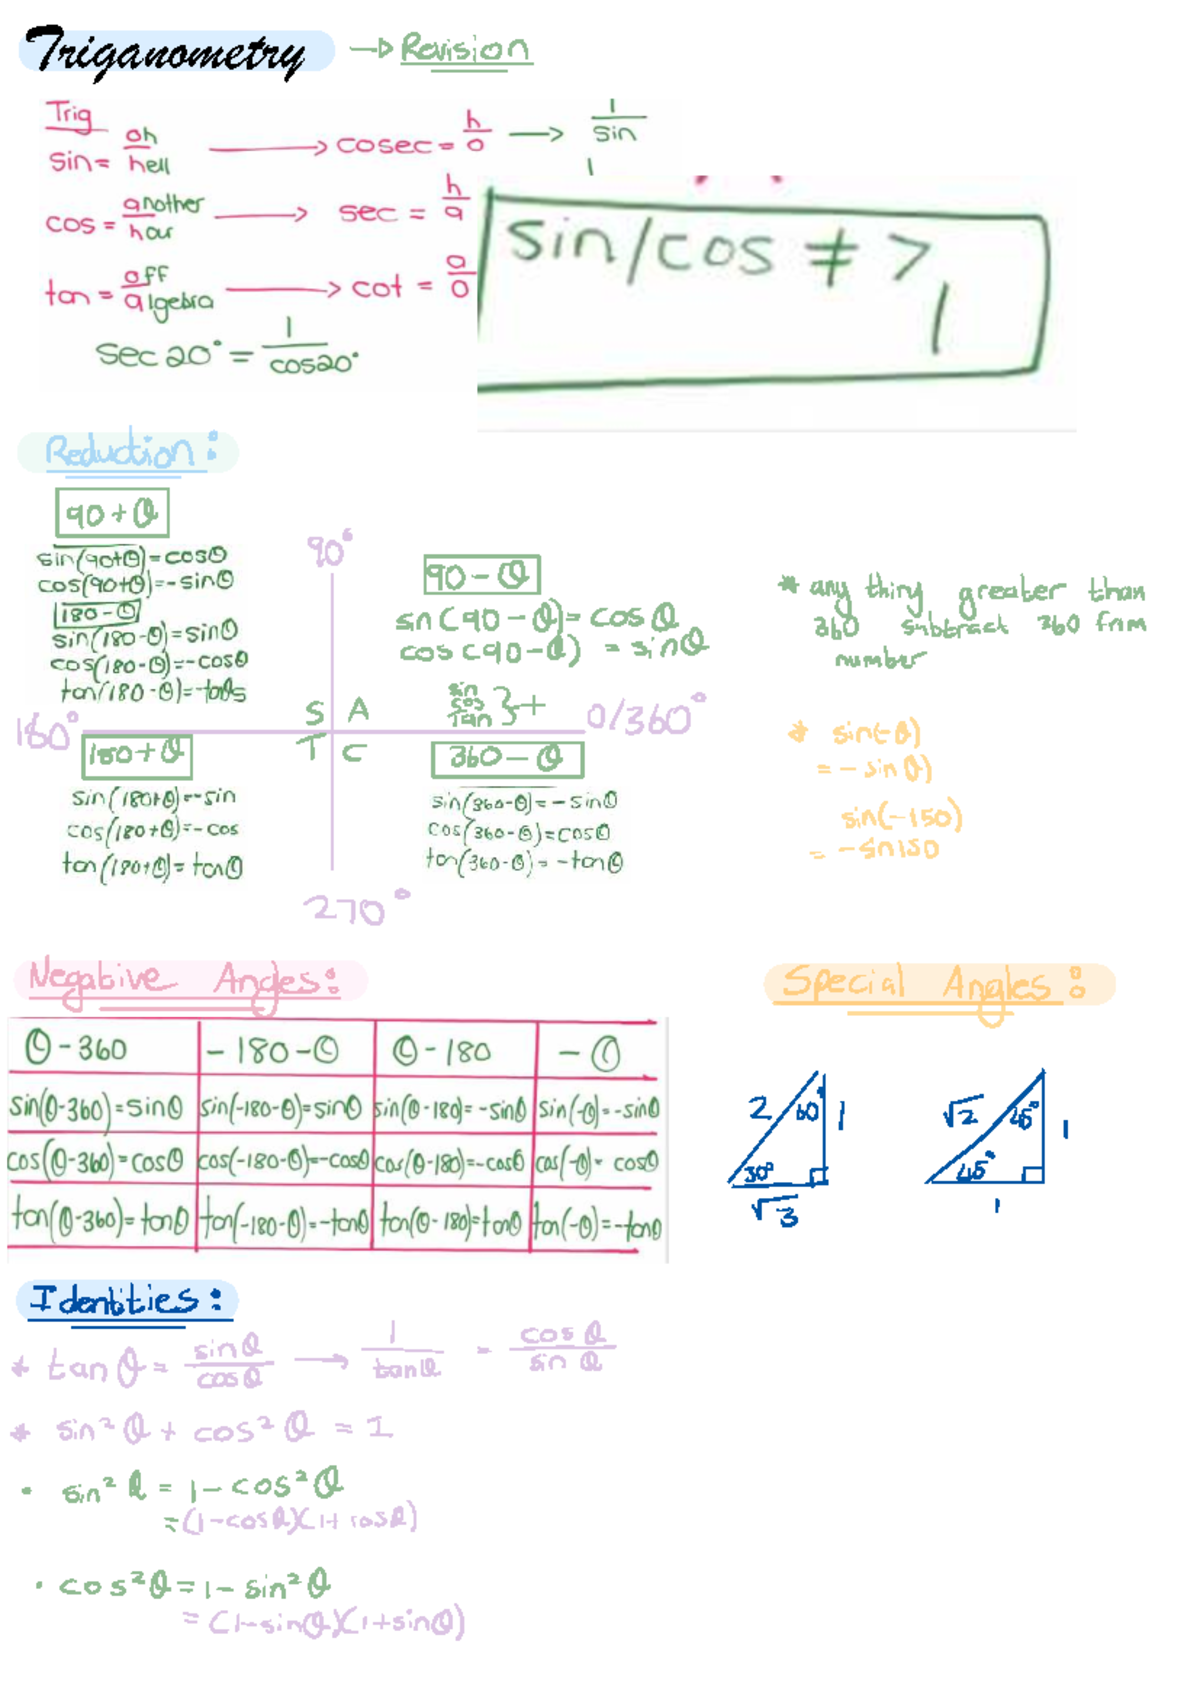 Triganometry → Revision
Trig
sin = oh/hell → cosec = h/o → 1/sin
1
cos = another/hour → sec = h/a
tan = off/algebra → cot = a/o
sec 20° = 1/cos20°
sin/cos ≠ > 1
Reduction:
90 + θ
sin(90+θ) = cosθ
cos(90+θ) = -sinθ
180 - θ
sin(180-θ) = sinθ
cos(180-θ) = -cosθ
90°
90 - θ
sin(90 - θ) = cos θ
cos(90 - θ) = sinθ
sin
cos
Tan } +
S A
T C
180°
0/360°
270°
180 + θ
sin(180+θ) = -sin
cos(180+θ) = -cos
tan(180+θ) = tanθ
360 - θ
sin(360-θ) = -sinθ
cos(360-θ) = cosθ
tan(360-θ) = -tanθ
* any thing greater than
360 subtract 360 from
number
* sin(-θ)
= - sin θ)
sin(-150)
= -sn150
Negative Angles:
θ - 360 | - 180 - θ | θ - 180 | - θ
sin(θ-360) = sinθ | sin(-180-θ) = sinθ | sin(θ-180) = -sinθ | sin(-θ) = -sinθ
cos(θ-360) = cosθ | cos(-180-θ) = -cosθ | cos(θ-180) = -cosθ | cos(-θ) = cosθ
tan(θ-360) = tanθ | tan(-180-θ) = -tanθ | tan(θ-180) = tanθ | tan(-θ) = -tanθ
Special Angles:
2 60° 1
30°
√3
√2 45° 1
45°
1
Identities:
* tan θ = sin θ/cos θ → 1/tan θ = cos θ/sin θ
* sin² θ + cos² θ = 1
• sin² θ = 1 - cos² θ
= (1-cos θ)(1+ cos θ)
• cos² θ = 1 - sin² θ
= (1-sin θ)(1+sin θ)